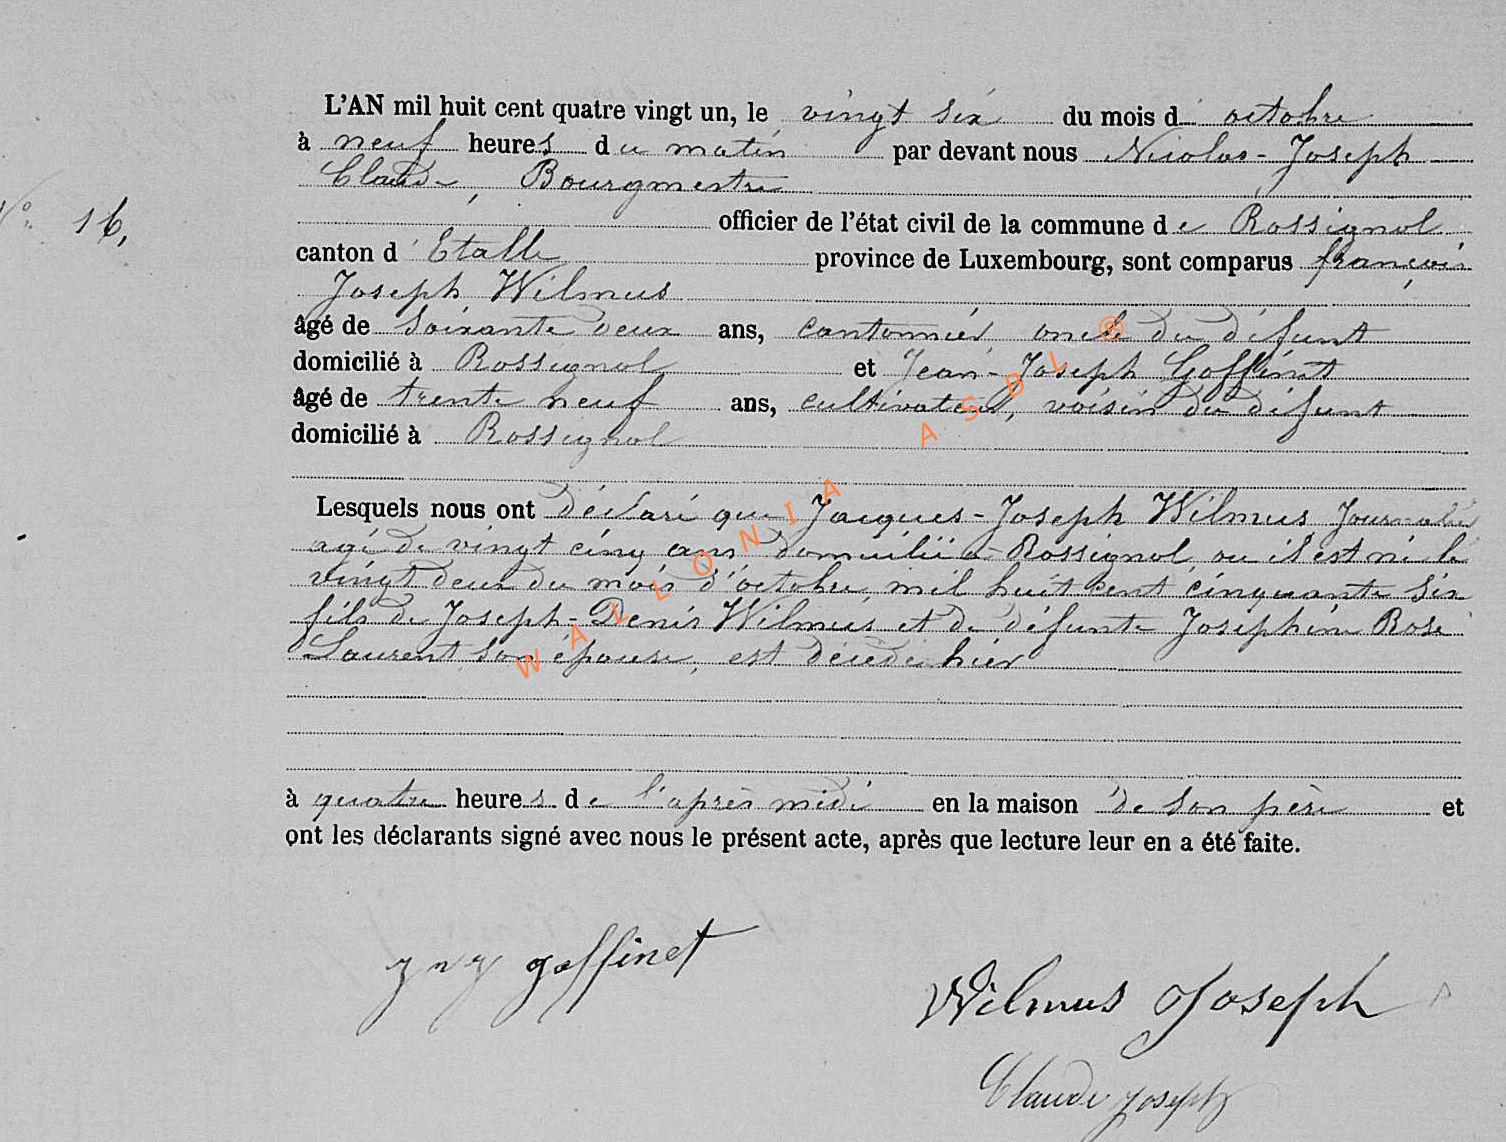 L'AN mil huit cent quatre vingt un, le vingt six du mois d octobre
à neuf heures du matin par devant nous Nicolas-Joseph
Claude, Bourgmestre
N° 16,
officier de l'état civil de la commune de Rossignol
canton d'Etalle province de Luxembourg, sont comparus françois
Joseph Wilmus
âgé de soixante deux ans, cantonnier oncle du défunt
domicilié à Rossignol et Jean-Joseph Goffinet
âgé de trente neuf ans, cultivateur, voisin du défunt
domicilié à Rossignol
Lesquels nous ont déclaré que Jacques-Joseph Wilmus Journalier
agé de vingt cinq ans domicilié à Rossignol, ou il est né le
vingt deux du mois d'octobre, mil huit cent cinquante six
fils de Joseph-Denis Wilmus et de défunte Joséphine Rose
Laurent son épouse, est décédé hier
à quatre heures de l'après midi en la maison de son père et
ont les déclarants signé avec nous le présent acte, après que lecture leur en a été faite.
goffinet
Wilmus Joseph
Claude Joseph
WALLONIA ASBL ®